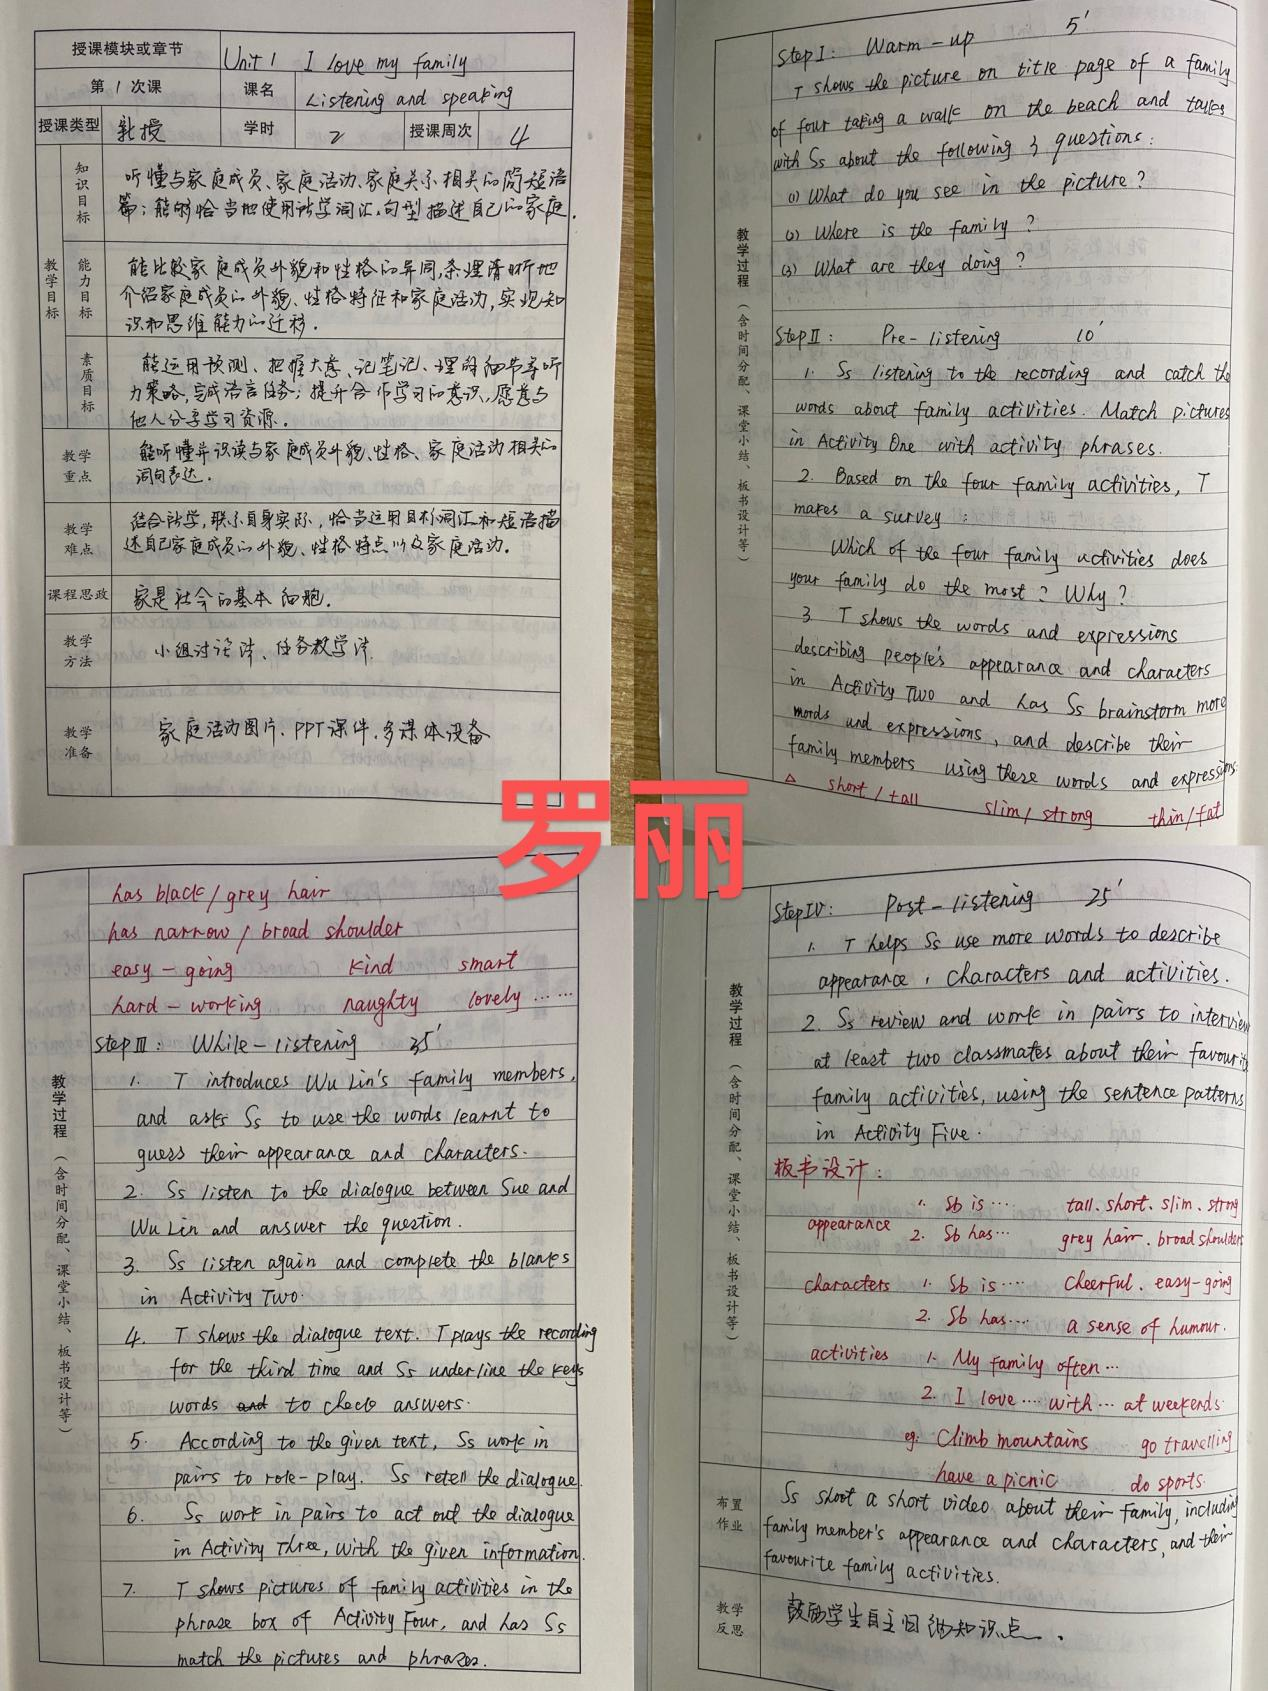 授课模块或章节 Unit 1 I love my family
第 1 次课 课名 Listening and speaking
授课类型 讲授 学时 2 授课周次 4
教学目标
知识目标
听懂与家庭成员、家庭活动、家庭关系相关的简短语
篇；能够恰当地使用所学词汇、句型描述自己的家庭.
能力目标
能比较家庭成员外貌和性格的异同,条理清晰地
介绍家庭成员的外貌、性格特征和家庭活动,实现知
识和思维能力的迁移.
素质目标
能运用预测、把握大意、记笔记、理解细节等听
力策略,完成语言任务；提升合作学习的意识,愿意与
他人分享学习资源.
教学重点
能听懂并识读与家庭成员外貌、性格、家庭活动相关的
词句表达.
教学难点
结合所学,联系自身实际,恰当运用目标词汇和短语描
述自己家庭成员的外貌、性格特点以及家庭活动.
课程思政 家是社会的基本细胞.
教学方法 小组讨论法、任务教学法.
教学准备 家庭活动图片、PPT课件、多媒体设备
教学过程（含时间分配、课堂小结、板书设计等）
Step I: Warm-up 5'
T shows the picture on title page of a family
of four taking a walk on the beach and talks
with Ss about the following 3 questions:
(1) What do you see in the picture?
(2) Where is the family?
(3) What are they doing?
Step II: Pre-listening 10'
1. Ss listening to the recording and catch the
words about family activities. Match pictures
in Activity One with activity phrases.
2. Based on the four family activities, T
makes a survey:
Which of the four family activities does
your family do the most? Why?
3. T shows the words and expressions
describing people's appearance and characters
in Activity Two and has Ss brainstorm more
words and expressions, and describe their
family members using these words and expressions.
△ short/tall slim/strong thin/fat
罗丽
has black/grey hair
has narrow/broad shoulder
easy-going kind smart
hard-working naughty lovely ……
教学过程（含时间分配、课堂小结、板书设计等）
Step III: While-listening 35'
1. T introduces Wu Lin's family members,
and asks Ss to use the words learnt to
guess their appearance and characters.
2. Ss listen to the dialogue between Sue and
Wu Lin and answer the question.
3. Ss listen again and complete the blanks
in Activity Two.
4. T shows the dialogue text. T plays the recording
for the third time and Ss underline the keys
words and to check answers.
5. According to the given text, Ss work in
pairs to role-play. Ss retell the dialogue.
6. Ss work in pairs to act out the dialogue
in Activity Three, with the given information.
7. T shows pictures of family activities in the
phrase box of Activity Four, and has Ss
match the pictures and phrases.
教学过程（含时间分配、课堂小结、板书设计等）
Step IV: Post-listening 25'
1. T helps Ss use more words to describe
appearance, characters and activities.
2. Ss review and work in pairs to interview
at least two classmates about their favourite
family activities, using the sentence patterns
in Activity Five.
板书设计:
appearance 1. Sb is… tall. short. slim. strong
2. Sb has… grey hair. broad shoulders
characters 1. Sb is…. Cheerful. easy-going
2. Sb has…. a sense of humour.
activities 1. My family often…
2. I love… with… at weekends.
eg: Climb mountains go travelling
have a picnic do sports.
布置作业
Ss shoot a short video about their family, including
family member's appearance and characters, and their
favourite family activities.
教学反思
鼓励学生自主归纳知识点.